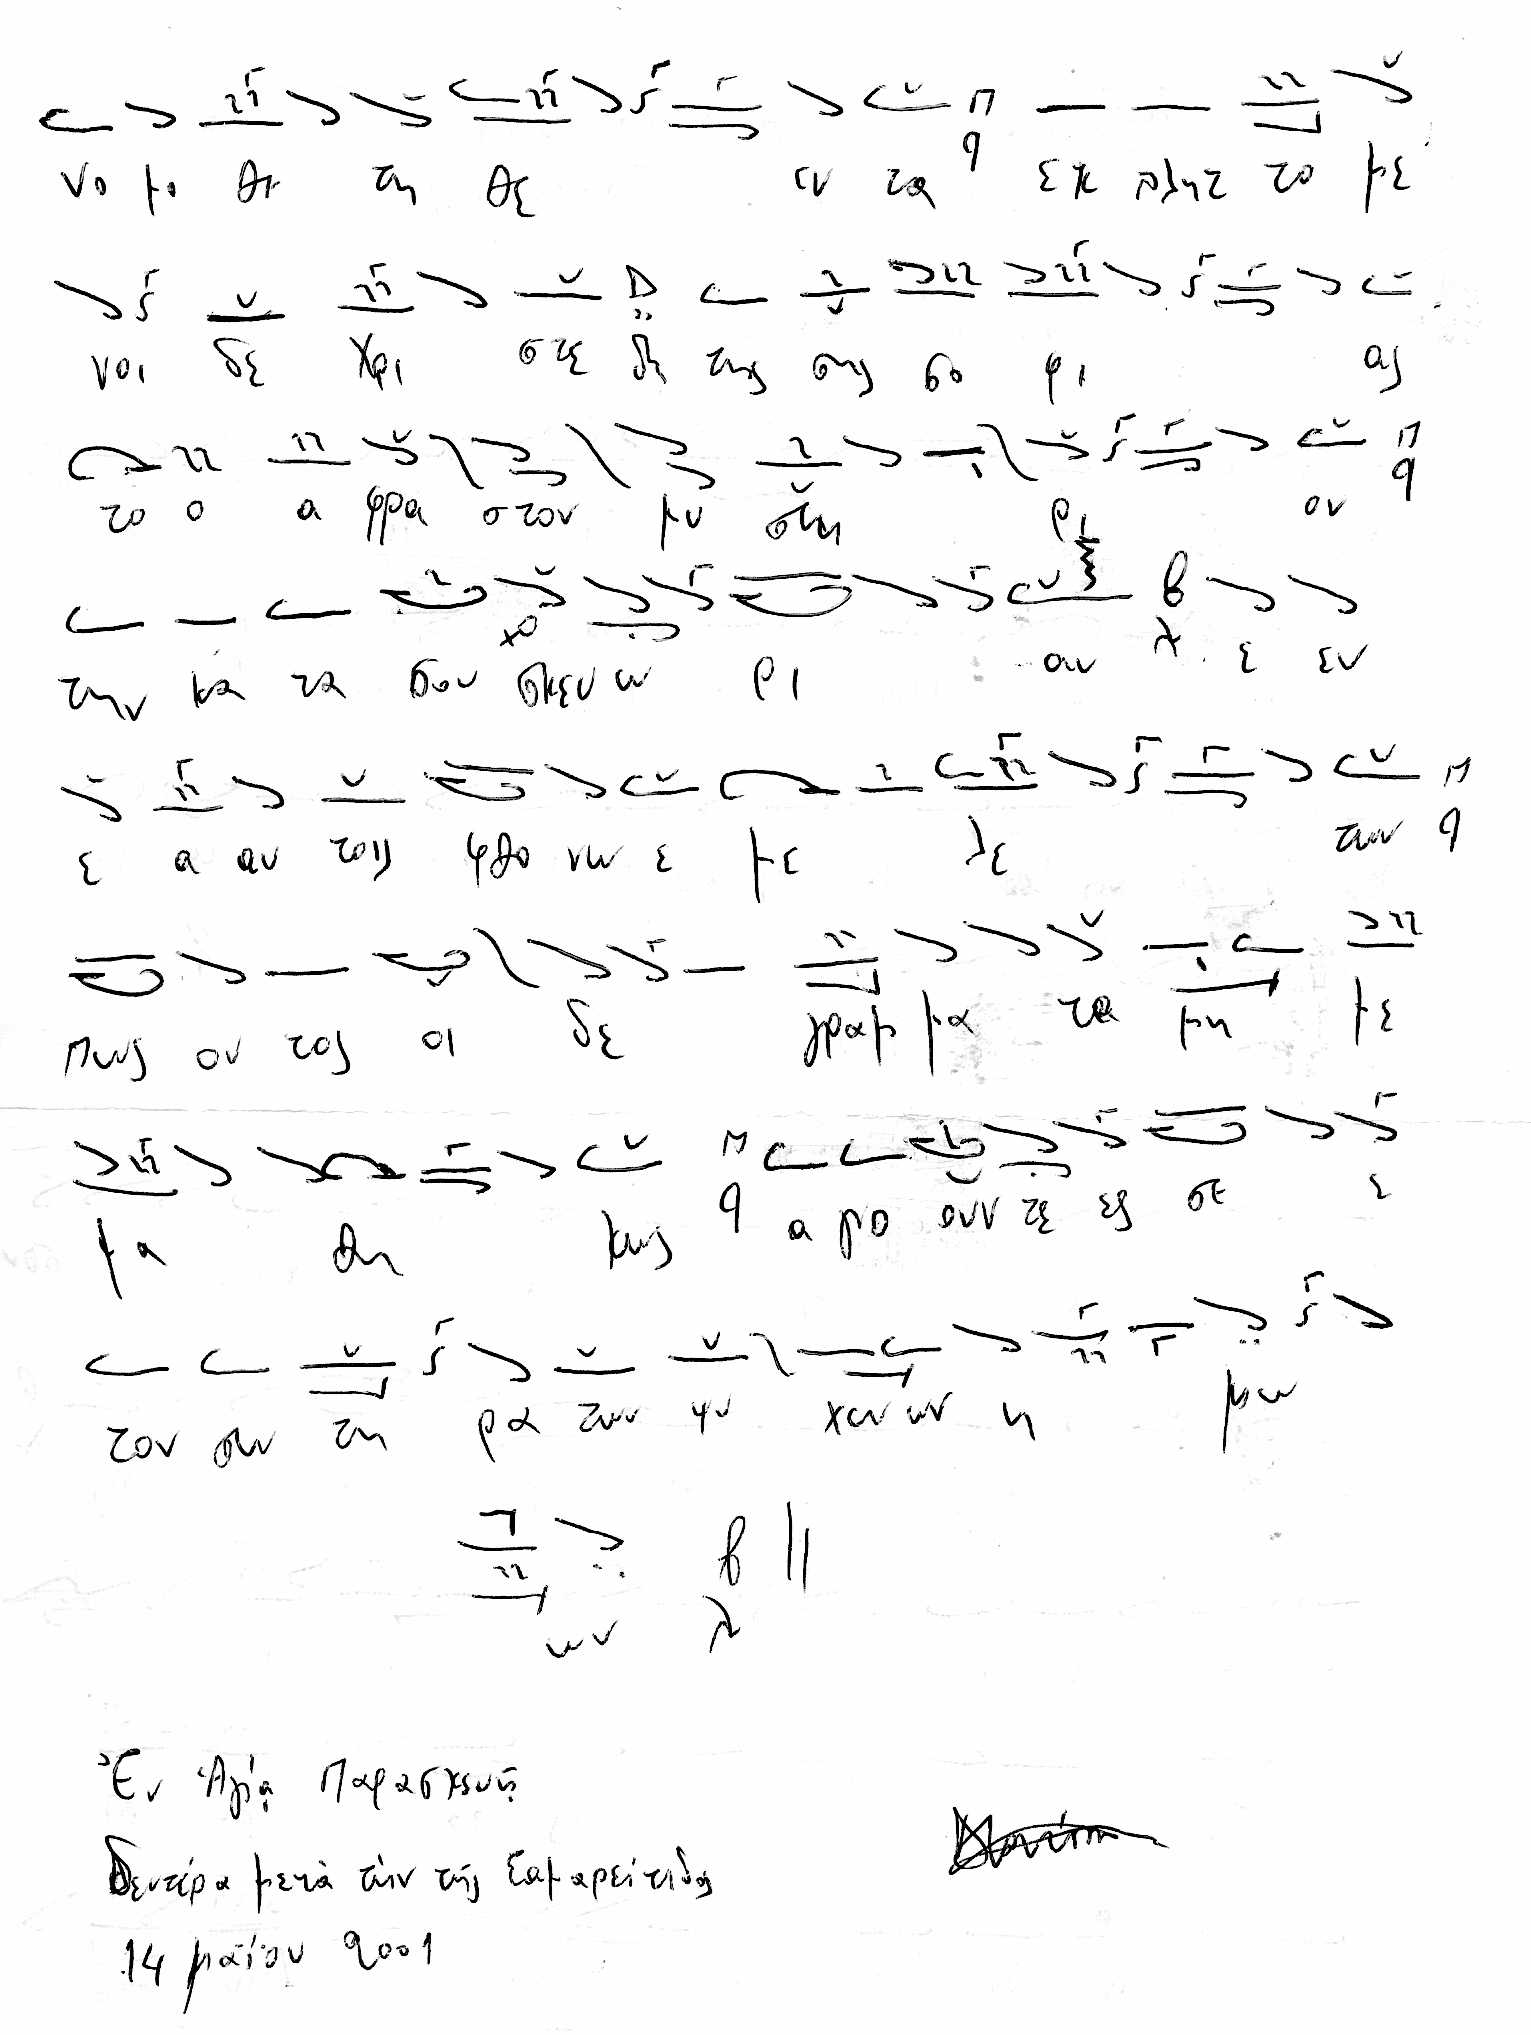 νο μο θε τη θε εν τα εκ πλητ το με
νοι δε Χρι στε δη της σης σο φι ας
το ο α φρα στον μυ στη ρι ον
την κα τα σου σκευ ω ρι αν ε εν
ε α αυ τοις φθο νω ε με λε των
πως ου τος οι δε γραμ μα τα μη με
μα θη κως α γνο ουν τες σε ε
τον σω τη ρα των ψυ χων ων η μω
ων
Ἐν Ἁγίᾳ Παρασκευῇ
Δευτέρα μετὰ τὴν τῆς Σαμαρείτιδος
14 μαΐου 2001